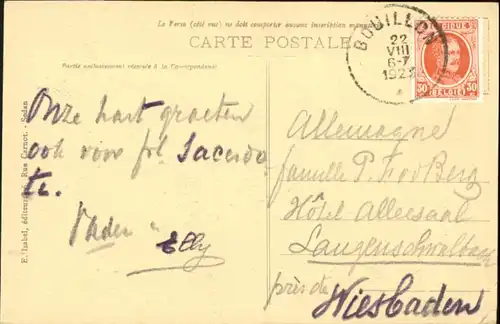 Le Verso (côté vue) ne doit comporter aucune inscription
CARTE POSTALE
Partie exclusivement réservée à la Correspondance
BOUILLON
22
VIII
6-7
192
BELGIQUE
30 30
BELGIË
E. Isabel, éditeur, Rue Carnot. - Sedan
Onze hart groeten
ook voor frl Sacerdo
te.
Vader
Elly
Allemagne
famille P. F. v. d. Berg
Hôtel Alleesaal
Langenschwalbach
près de
Wiesbaden